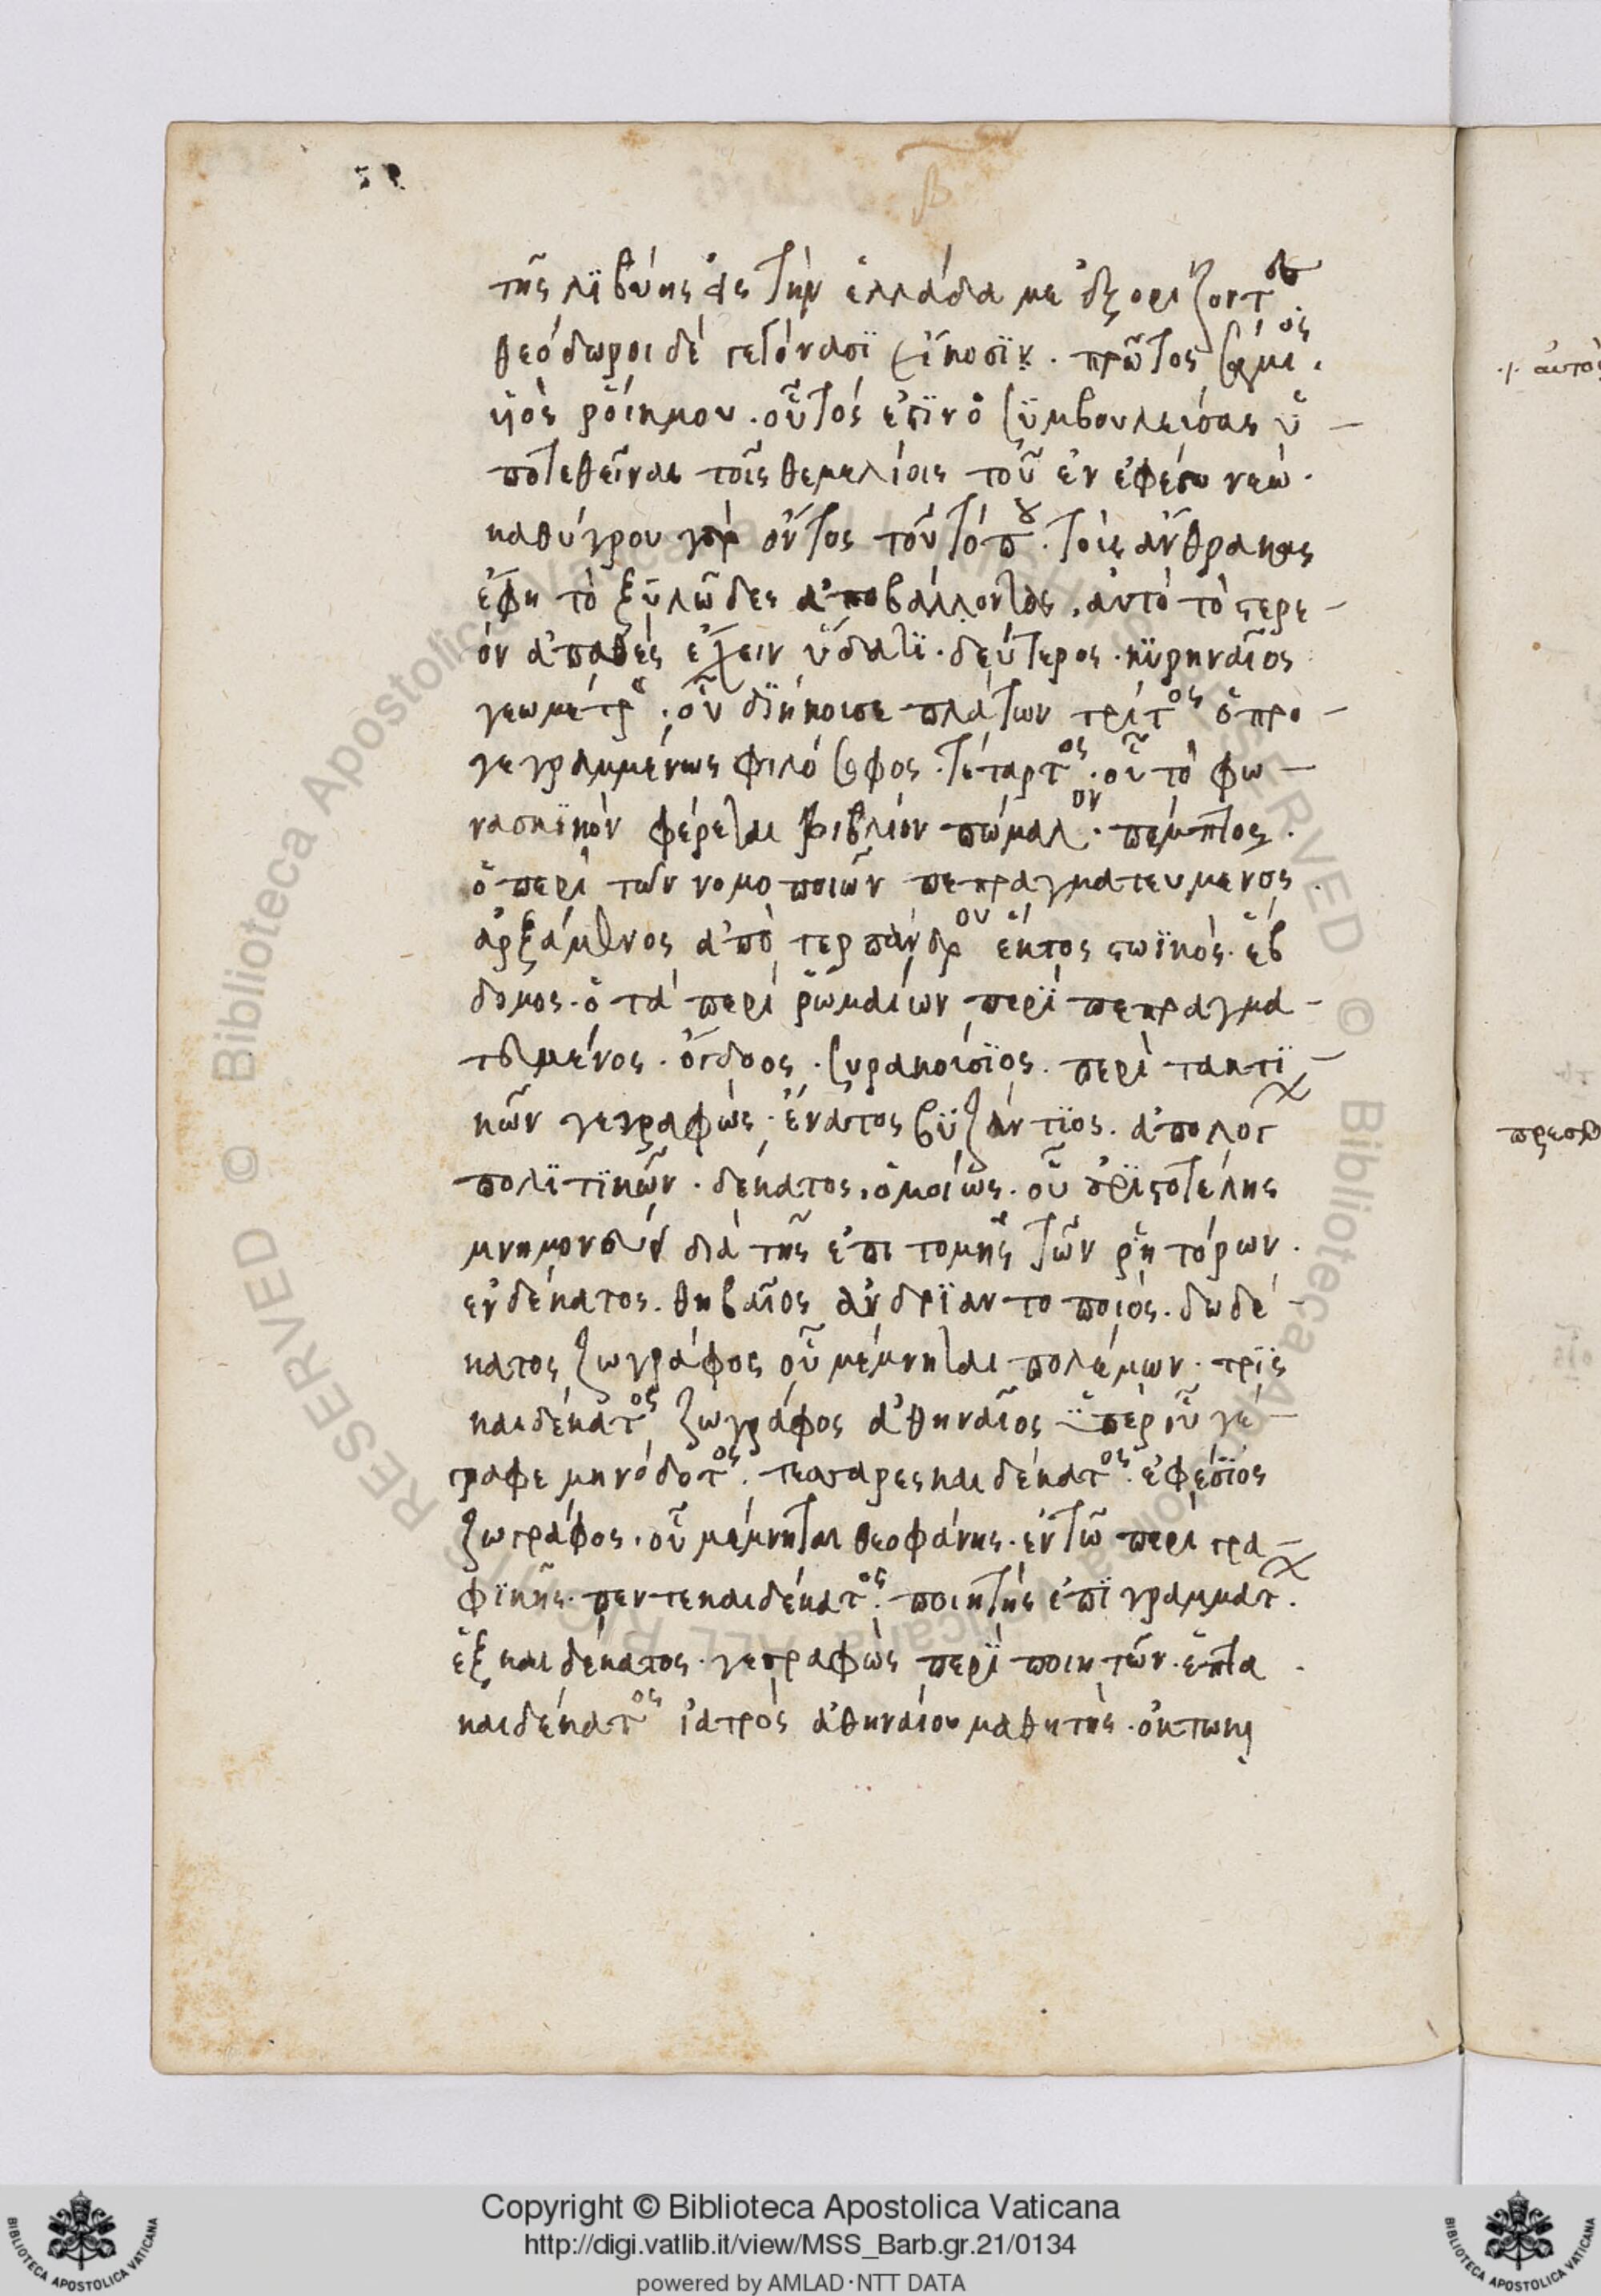 β
τῆς λϊβύης εἰς τὴν ἑλλάδα με ἐξορίζοντες.
θεόδωροι δὲ γεγόνασϊ εἴκοσϊ κ. πρῶτος σάμιος.
ὑιὸς ῥοίκμου. οὗτός ἐστϊν ὁ συμβουλεύσας ὑ-
ποτεθεῖναι τοῖς θεμελίοις τοῦ ἐν ἐφέσω νεώ.
καθύγρου γὰρ ὄντος τοῦ τόπου. τοὺς ἄνθρακας
ἔφη τὸ ξϋλῶδες ἀποβάλλοντας. αὐτὸ τὸ στερε-
ὸν ἀπαθὲς ἔχειν ὕδατϊ. δεύτερος. κϋρηναῖος
γεωμέτρης. οὗ διήκουσε πλάτων τρίτος ὁ προ-
γεγραμμένως φιλόσοφος. τέταρτος. οὗ τὸ φω-
νασκϊκὸν φέρεται βιβλίον πώμαλον. πέμπτος.
ὁ περὶ τῶν νομοποιῶν πεπραγματευμενος.
ἀρξάμενος ἀπὸ τερπάνδρου ἕκτος στωϊκός. ἕβ
δομος. ὁ τὰ περὶ ῥωμαίων περϊ πεπραγμα-
τευμένος. ὄγδοος. συρακούσϊος. περὶ τακτϊ-
κῶν γεγραφὼς. ἔνατος βϋζάντϊος. ἀπὸ λόγων
πολϊτϊκῶν. δέκατος. ὁμοίως. οὗ ἀρϊστοτέλης
μνημονεύει διὰ τῆς ἐπιτομῆς τῶν ῥητόρων.
ἐνδέκατος. θηβαῖος ἀνδρϊαντοποιός. δωδέ-
κατος ζωγράφος οὗ μέμνηται πολέμων. τρϊς
καιδέκατος ζωγράφος ἀθηναῖος ὑπὲρ οὗ γέ-
γραφε μηνόδοτος. τεσσαρεσκαιδέκατος. ἐφέσϊος
ζωγράφος. οὗ μέμνηται θεοφάνης. ἐν τῶ περὶ γρα-
φϊκῆς. πεντεκαιδέκατος. ποιητὴς ἐπϊγραμμάτων.
ἑξκαιδέκατος. γεγραφὼς περϊ ποιητῶν. ἑπτα
καιδέκατος ἰατρὸς ἀθηναίου μαθητής. ὀκτωκαι
αὐτὸς
πρεσβ
Copyright © Biblioteca Apostolica Vaticana
http://digi.vatlib.it/view/MSS_Barb.gr.21/0134
powered by AMLAD·NTT DATA